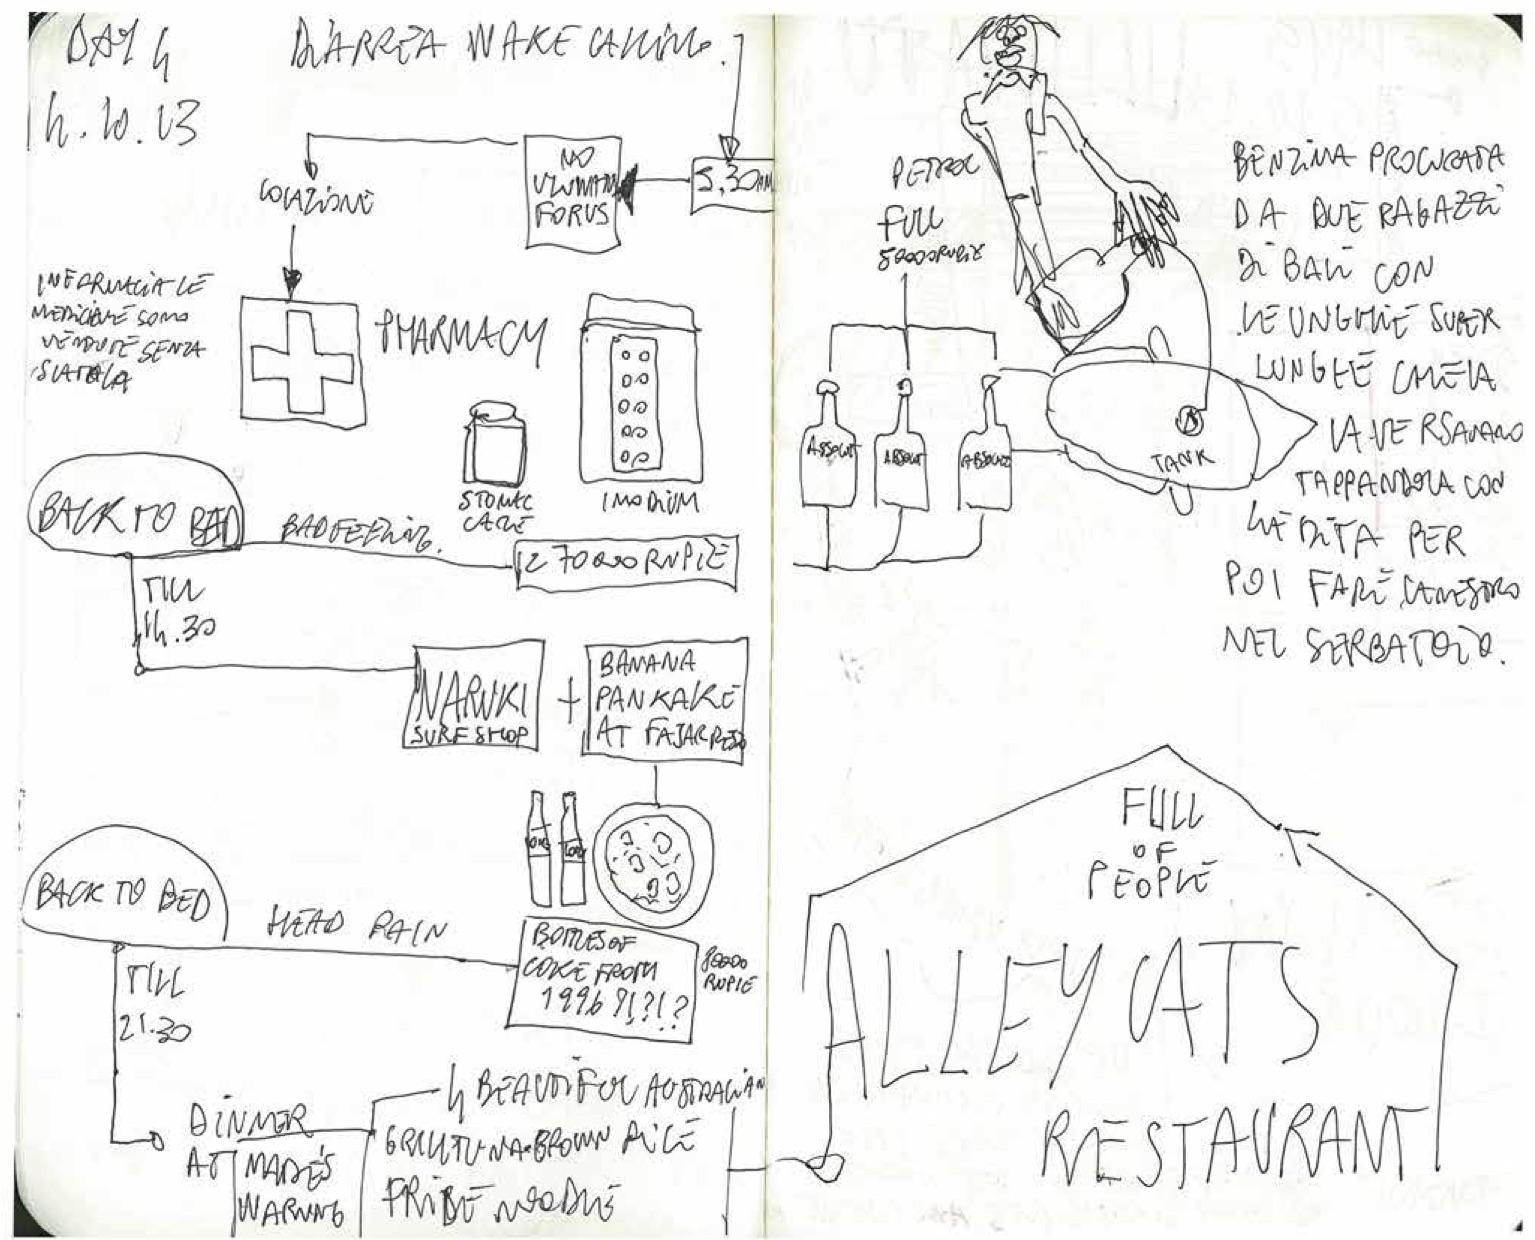 DAY 4
4.10.13
DIARREA WAKE CALLING.
5,30AM
NO
ULUWATU
FORUS
COLAZIONE
IN FARMACIA LE
MEDICINE SONO
VENDUTE SENZA
SCATOLA
PHARMACY
STOMAC
CARE
IMODIUM
BACK TO BED
BAD FEELING.
270000 RUPIE
TILL
14.30
NARUKI
SURF SHOP
+
BANANA
PANKAKE
AT FAJAR RESO
BACK TO BED
HEAD PAIN
BOTTLES OF
COKE FROM
1996 ?!?!?
80000
RUPIE
TILL
21.30
DINNER
AT
MADE'S
WARUNG
4 BEAUTIFUL AUSTRALIAN
GRILL TUNA-BROWN RICE
FRIED NOODLE
PETROL
FULL
5000 RUPIE
ABSOLUT
ABSOLUT
ABSOLUT
TANK
BENZINA PROCURATA
DA DUE RAGAZZI
DI BALI CON
LE UNGHIE SUPER
LUNGHE CHE LA
LA VERSAVANO
TAPPANDOLA CON
LA DITA PER
POI FARE CANESTRO
NEL SERBATOIO.
FULL
OF
PEOPLE
ALLEY CATS
RESTAURANT